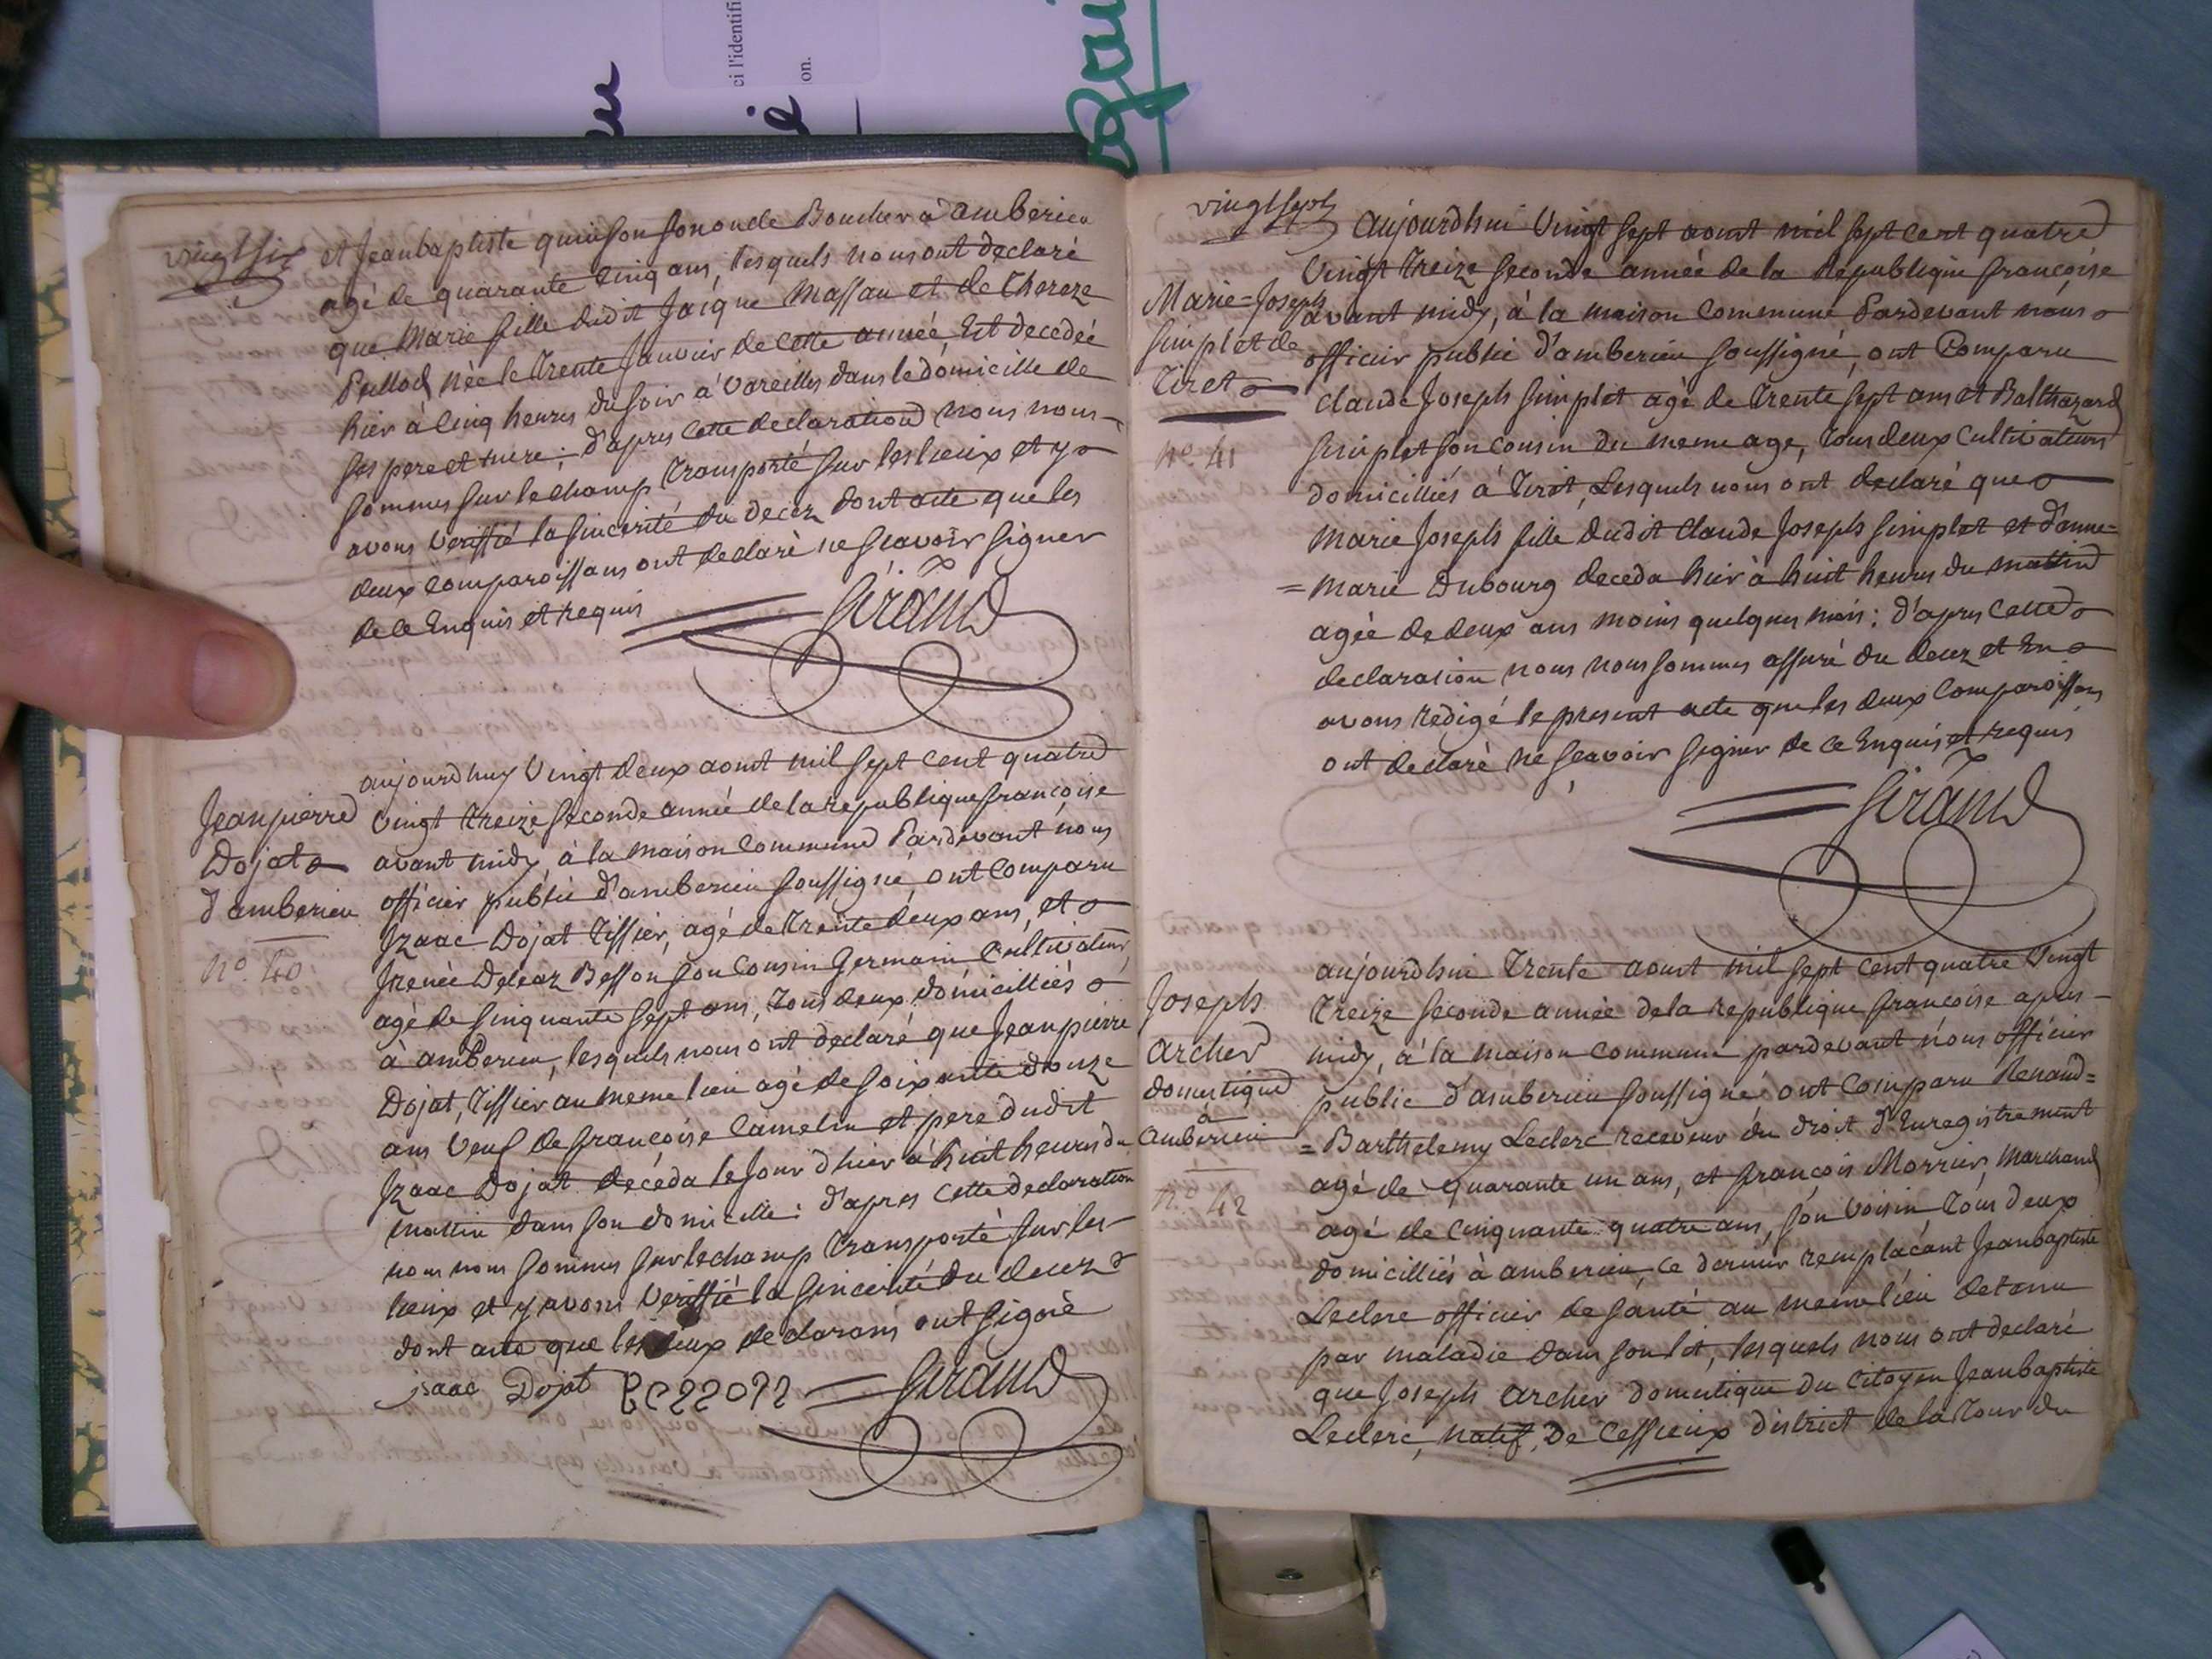 ci l'identifi
on.
vingt six
et Jeanbaptiste quinson fononde Boucher à amberieu
agé de quarante cinq ans, lesquels nous ont declaré
que Marie fille dudit Jacque Massau et de Thereze
Pullod née le trente Janvier de cette année Est decedée
hier à cinq heures du soir à Vareilles dans le domicille de
ses pere et mere; d'apres cette declaration nous nous
sommes sur le champ transporté sur les lieux et y
avons veriffié la sincerité du decez dont acte que les
deux comparoissans ont declaré ne sçavoir signer
de ce Enquis et requis
Giraud
Jeanpierre
Dojat
d'amberieu
n.o 40
aujourdhuy vingt deux aout mil sept cent quatre
vingt treize seconde année de la republique françoise
avant midy à la maison commune Pardevant nous
officier public d'amberieu soussigné, ont comparu
Izaac Dojat Tissier, agé de trente deux ans, et
Irenée Deleaz Besson son cousin Germain Cultivateur
agé de sinquante sept ans, tous deux domicilliés
à amberieu, lesquels nous ont declaré que Jeanpierre
Dojat, Tissier au meme lieu agé de soixante douze
ans veuf de françoise Camelin et pere dudit
Izaac Dojat deceda le Jour d'hier à huit heures du
mattin dans son domicille: d'apres cette declaration
nous nous sommes sur le champ transporté sur les
lieux et y avons veriffié la sincerité du decez
dont acte que les deux declarans ont signé
isaac Dojat Giraud
vingt sept
Marie=Joseph
Simplet de
Tiret
n.o 41
aujourdhui vingt sept aout mil sept cent quatre
vingt treize seconde année de la Republique françoise
avant midy, à la maison commune Pardevant nous
officier public d'amberieu soussigné, ont Comparu
claude Joseph Simplet agé de trente sept ans et Balthazard
Simplet son cousin du meme age, tous deux cultivateurs
domicilliés à Tiret, Lesquels nous ont declaré que
Marie Joseph fille dudit claude Joseph Simplet et d'anne=
=Marie Dubourg deceda hier à huit heures du mattin
agée de deux ans moins quelques mois: d'apres cette
declaration nous nous sommes assuré du decez et En
avons redigé le present acte que les deux Comparoissans
ont declaré ne sçavoir signer de ce Enquis et requis
Giraud
Joseph
Archer
domestique
à
Amberieu
n.o 42
aujourdhui trente aout mil sept cent quatre vingt
treize seconde année de la republique françoise apres
midy, à la maison commune pardevant nous officier
public d'amberieu soussigné ont comparu Renaud=
=Barthelemy Leclerc receveur du droit d'Enregistrement
agé de quarante un ans, et françois Morrier marchand
agé de cinquante quatre ans, son voisin tous deux
domicilliés à amberieu, ce dernier remplaçant Jeanbaptiste
Leclerc officier de santé au meme lieu detenu
par maladie dans son lit, lesquels nous ont declaré
que Joseph Archer domestique du citoyen Jeanbaptiste
Leclerc, natif de Cessieux district de la tour du